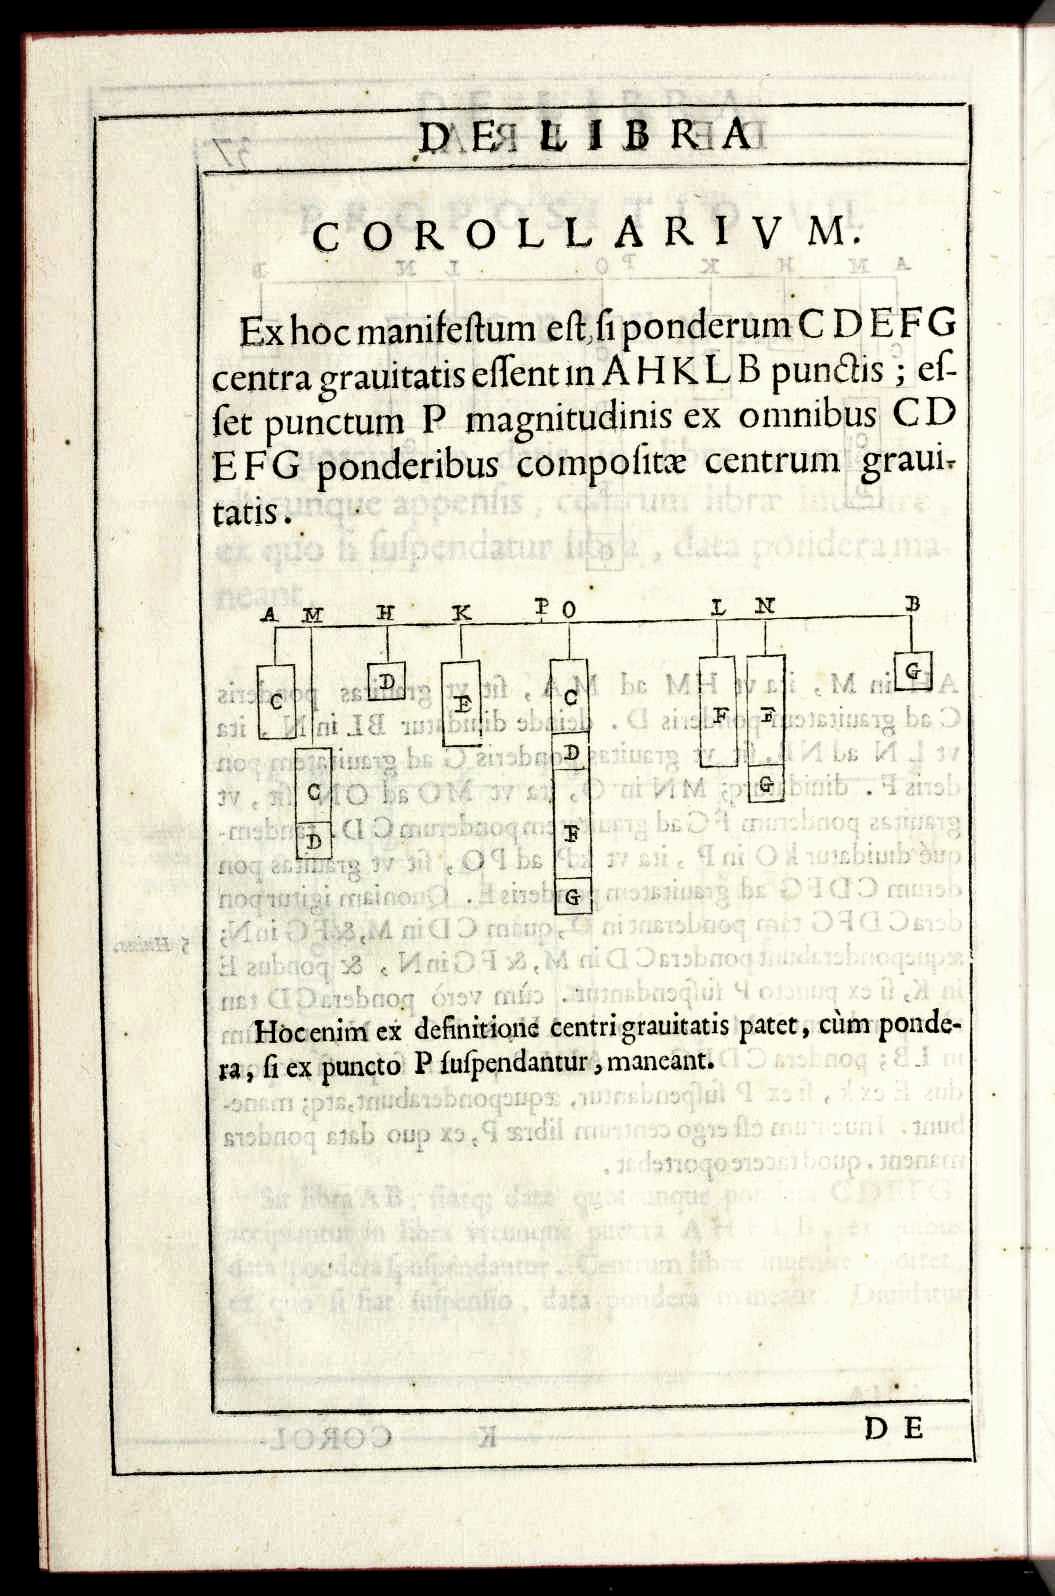 DE LIBRA
COROLLARIVM.
Ex hoc manifeſtum eſt, ſi ponderum C D E F G
centra grauitatis eſſent in A H K L B punctis ; eſ-
ſet punctum P magnitudinis ex omnibus C D
E F G ponderibus compoſitæ centrum graui-
tatis.
A M H K P O L N B
C D E C F F G
D
C G
D F
G
Hoc enim ex definitione centri grauitatis patet, cùm ponde-
ra, ſi ex puncto P ſuſpendantur, maneant.
DE